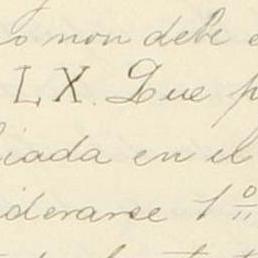 o non debe e
LX. Que p
iada en el
iderarse 1º